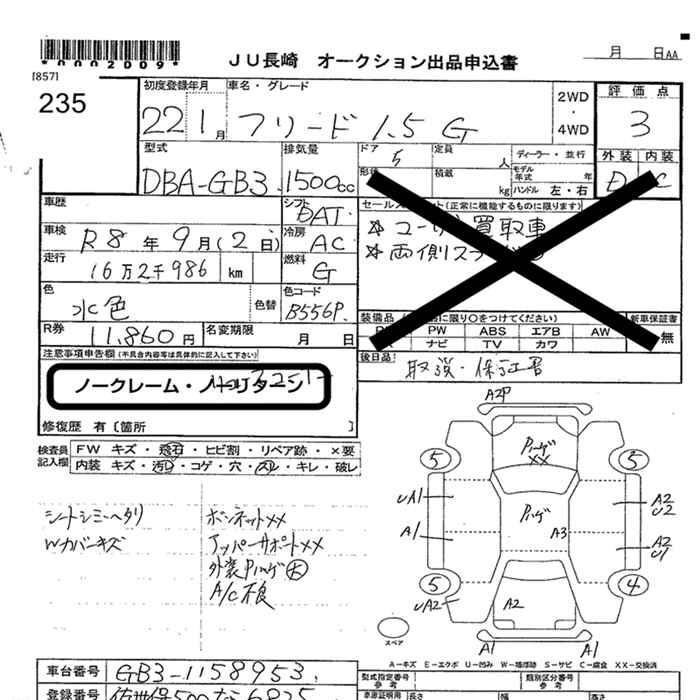 *0002009*
[857]
JU長崎 オークション出品申込書
月 日AA
235
初度登録年月
車名・グレード
評価点
22 1月 フリード 1.5 G
2WD
・
4WD
3
型式
排気量
ドア
定員
ディーラー・並行
外装 内装
DBA-GB3
1500cc
5
人
形状
積載
kg
モデル年式 年
ハンドル 左・右
D C
車歴
シフト
DAT
セールスポイント(正常に機能するものに限ります)
車検 R8年9月(2日)
冷房
AC
*ユーザー買取車
*両側スラ
走行 16万2千986 km
燃料
G
色 水色
色替
色コード
B556P
装備品 に限り○をつけてください)
新車保証書
PW ABS エアB AW
ナビ TV カワ
無
R券 11,860円
名変期限 月 日
注意事項申告欄(不具合内容等は具体的に記入して下さい)
後日品 取説・保証書
ノークレーム・ノーリターン
修復歴 有〔箇所 〕
検査員記入欄
FW キズ・飛石・ヒビ割・リペア跡・×要
内装 キズ・汚レ・コゲ・穴・スレ・キレ・破レ
シートシミ・ヘタリ
Wカバーキズ
ボンネットXX
アッパーサポートXX
外装Pハゲ大
A/C不良
A2P
Pハゲ
XX
5
5
UA1
Pハゲ
A2
U2
A1
A3
A2
U1
5
4
UA2
A2
スペア
A1
A1
A-キズ E-エクボ U-凹み W-補修跡 S-サビ C-腐食 XX-交換済
車台番号 GB3-1158953
型式指定番号
参考
類別区分番号
参考
登録番号 佐世保500な6825
車庫証明用
長さ
幅
高さ